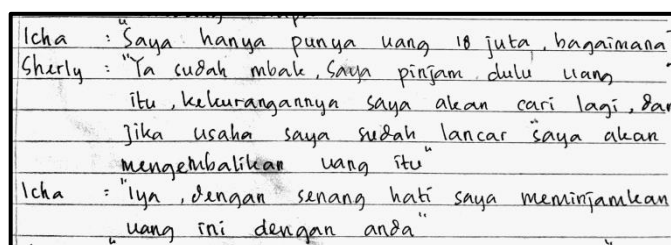 Icha : "Saya hanya punya uang 18 juta, bagaimana"
Sherly : "Ya sudah mbak, saya pinjam dulu uang
itu, kekurangannya saya akan cari lagi, dan
Jika usaha saya sudah lancar saya akan
mengembalikan uang itu"
Icha : "Iya, dengan senang hati saya meminjamkan
uang ini dengan anda"